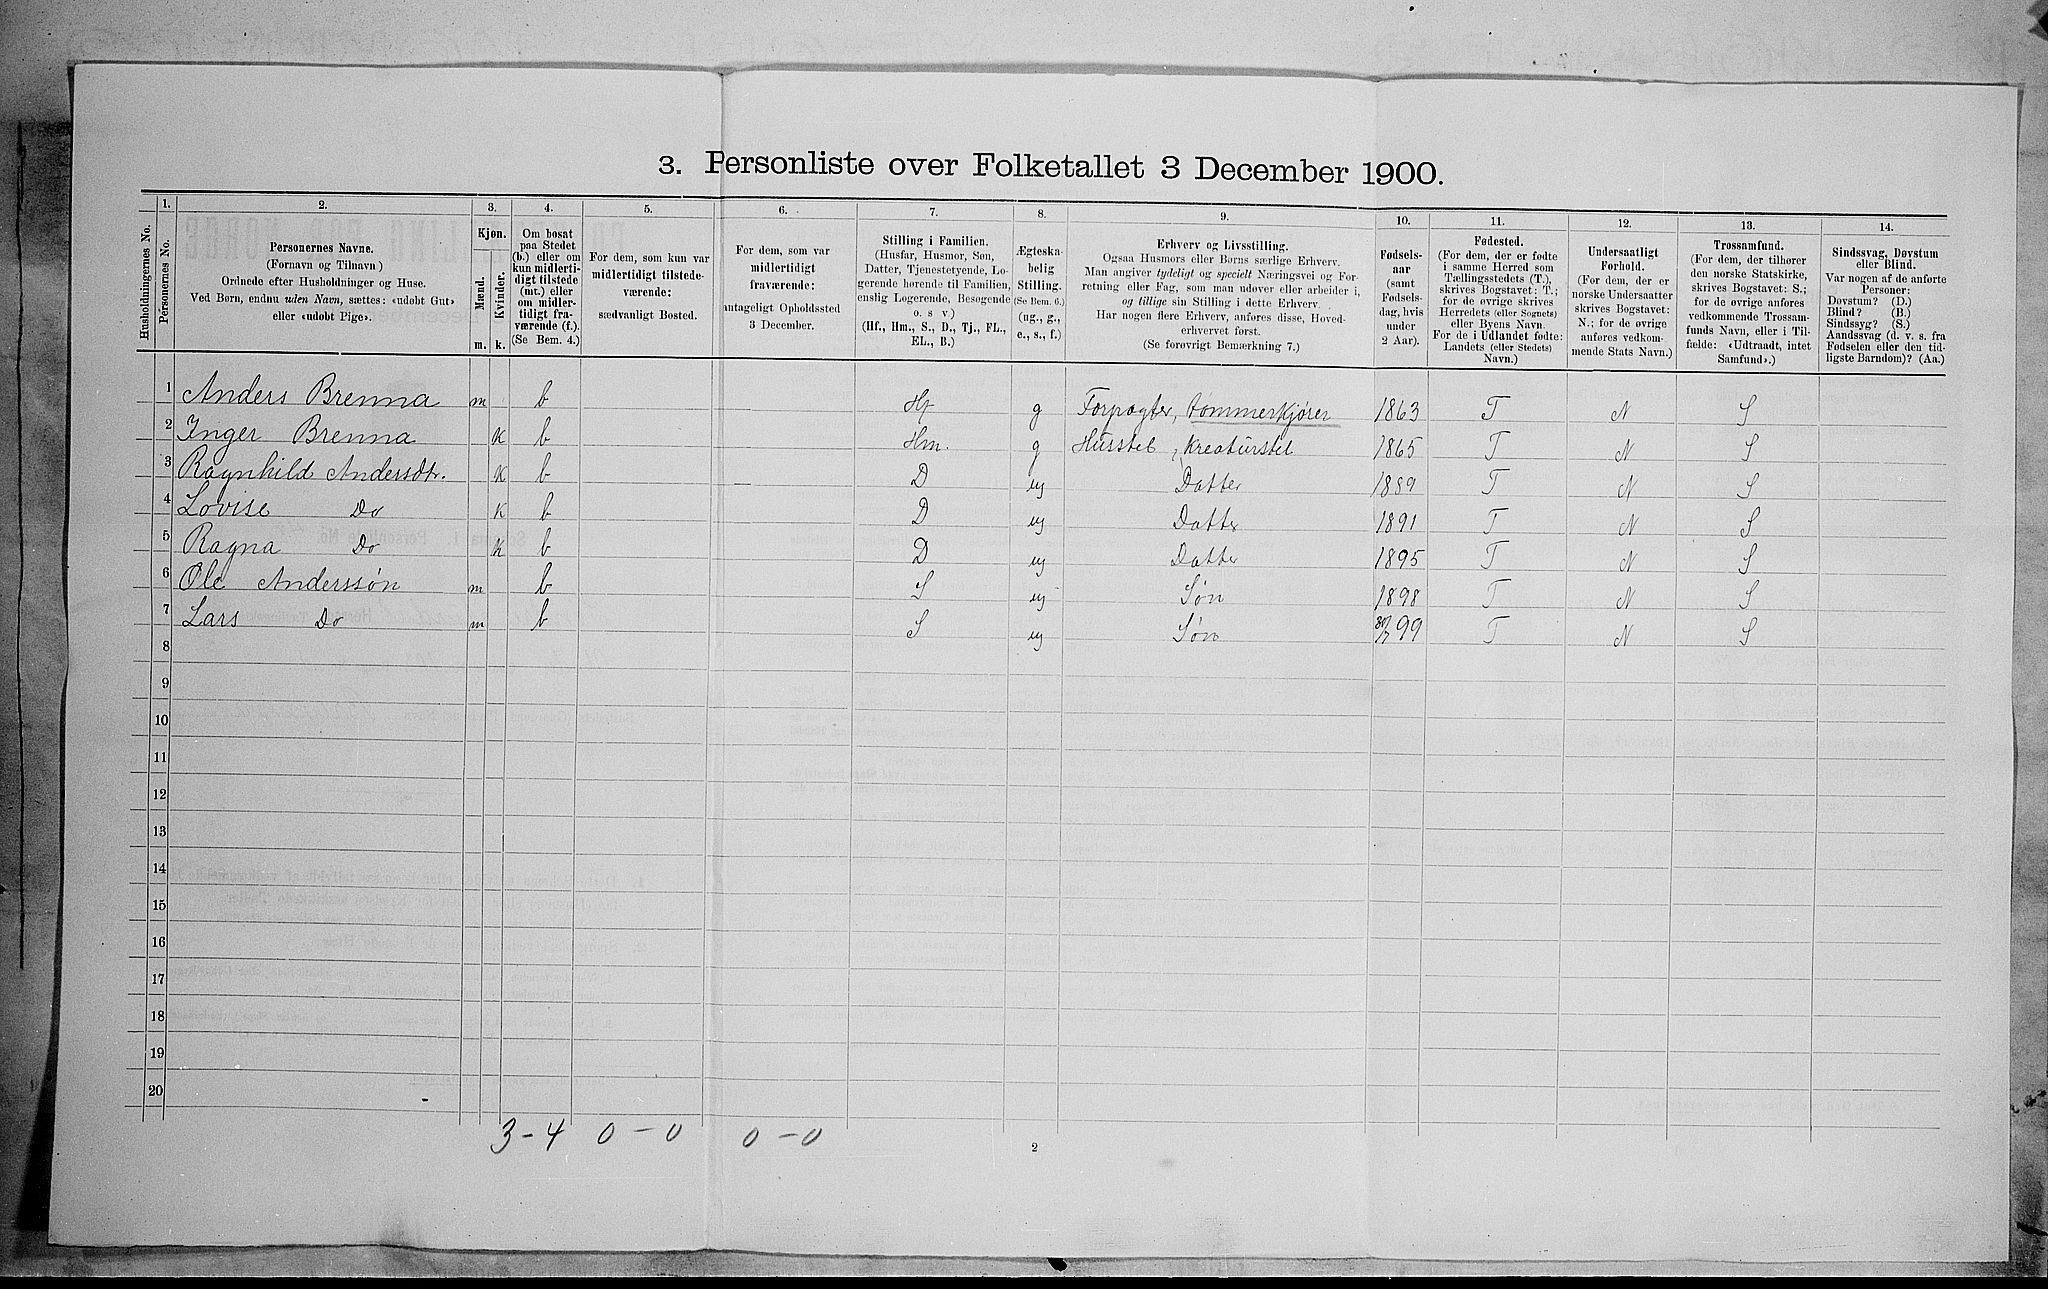 3. Personliste over Folketallet 3 December 1900.
1. 2. 3. 4. 5. 6. 7. 8. 9. 10. 11. 12. 13. 14.
Husholdningernes No.
Personernes No.
Personernes Navne.
(Fornavn og Tilnavn)
Ordnede efter Husholdninger og Huse.
Ved Børn, endnu uden Navn, sættes: «udøbt Gut»
eller «udøbt Pige».
Kjøn.
Mænd.
Kvinder.
m. k.
Om bosat
paa Stedet
(b.) eller om
kun midlerti-
digt tilstede
(mt.) eller
om midler-
tidigt fra-
værende (f.).
(Se Bem. 4.)
For dem, som kun var
midlertidigt tilstede-
værende:
sædvanligt Bosted.
For dem, som var
midlertidigt
fraværende:
antageligt Opholdssted
3 December.
Stilling i Familien.
(Husfar, Husmor, Søn,
Datter, Tjenestetyende, Lo-
gerende hørende til Familien,
enslig Logerende, Besøgende
o. s v.)
(Hf., Hm., S., D., Tj., FL.,
EL., B.)
Ægteska-
belig
Stilling.
(Se Bem. 6.)
(ug., g.,
e., s., f.)
Erhverv og Livsstilling.
Ogsaa Husmors eller Børns særlige Erhverv.
Man angiver tydeligt og specielt Næringsvei og For-
retning eller Fag, som man udøver eller arbeider i,
og tillige sin Stilling i dette Erhverv.
Har nogen flere Erhverv, anføres disse, Hoved-
erhvervet først.
(Se forøvrigt Bemærkning 7.)
Fødsels-
aar
(samt
Fødsels-
dag, hvis
under
2 Aar).
Fødested.
(For dem, der er fødte
i samme Herred som
Tællingsstedets (T.),
skrives Bogstavet: T.;
for de øvrige skrives
Herredets (eller Sognets)
eller Byens Navn.
For de i Udlandet fødte:
Landets (eller Stedets)
Navn.)
Undersaatligt
Forhold.
(For dem, der er
norske Undersaatter
skrives Bogstavet:
N.; for de øvrige
anføres vedkom-
mende Stats Navn.)
Trossamfund.
(For dem, der tilhører
den norske Statskirke,
skrives Bogstavet: S.;
for de øvrige anføres
vedkommende Trossam-
funds Navn, eller i Til-
fælde: «Udtraadt, intet
Samfund».)
Sindssvag, Døvstum
eller Blind.
Var nogen af de anførte
Personer:
Døvstum? (D.)
Blind? (B.)
Sindssyg? (S.)
Aandssvag (d. v. s. fra
Fødselen eller den tid-
ligste Barndom)? (Aa.)
1 Anders Brenna m b Hf g Forpagter, tømmerkjører 1863 T N S
2 Inger Brenna K b Hm. g Husstel, Kreaturstel 1865 T N S
3 Ragnhild Andersdtr. K b D ug Datter 1889 T N S
4 Lovise Do K b D ug Datter 1891 T N S
5 Ragna Do K b D ug Datter 1895 T N S
6 Ole Anderssøn m b S ug Søn 1898 T N S
7 Lars Do m b S ug Søn 99 T N S
8
9
10
11
12
13
14
15
16
17
18
19
20
3-4 0-0 0-0
2